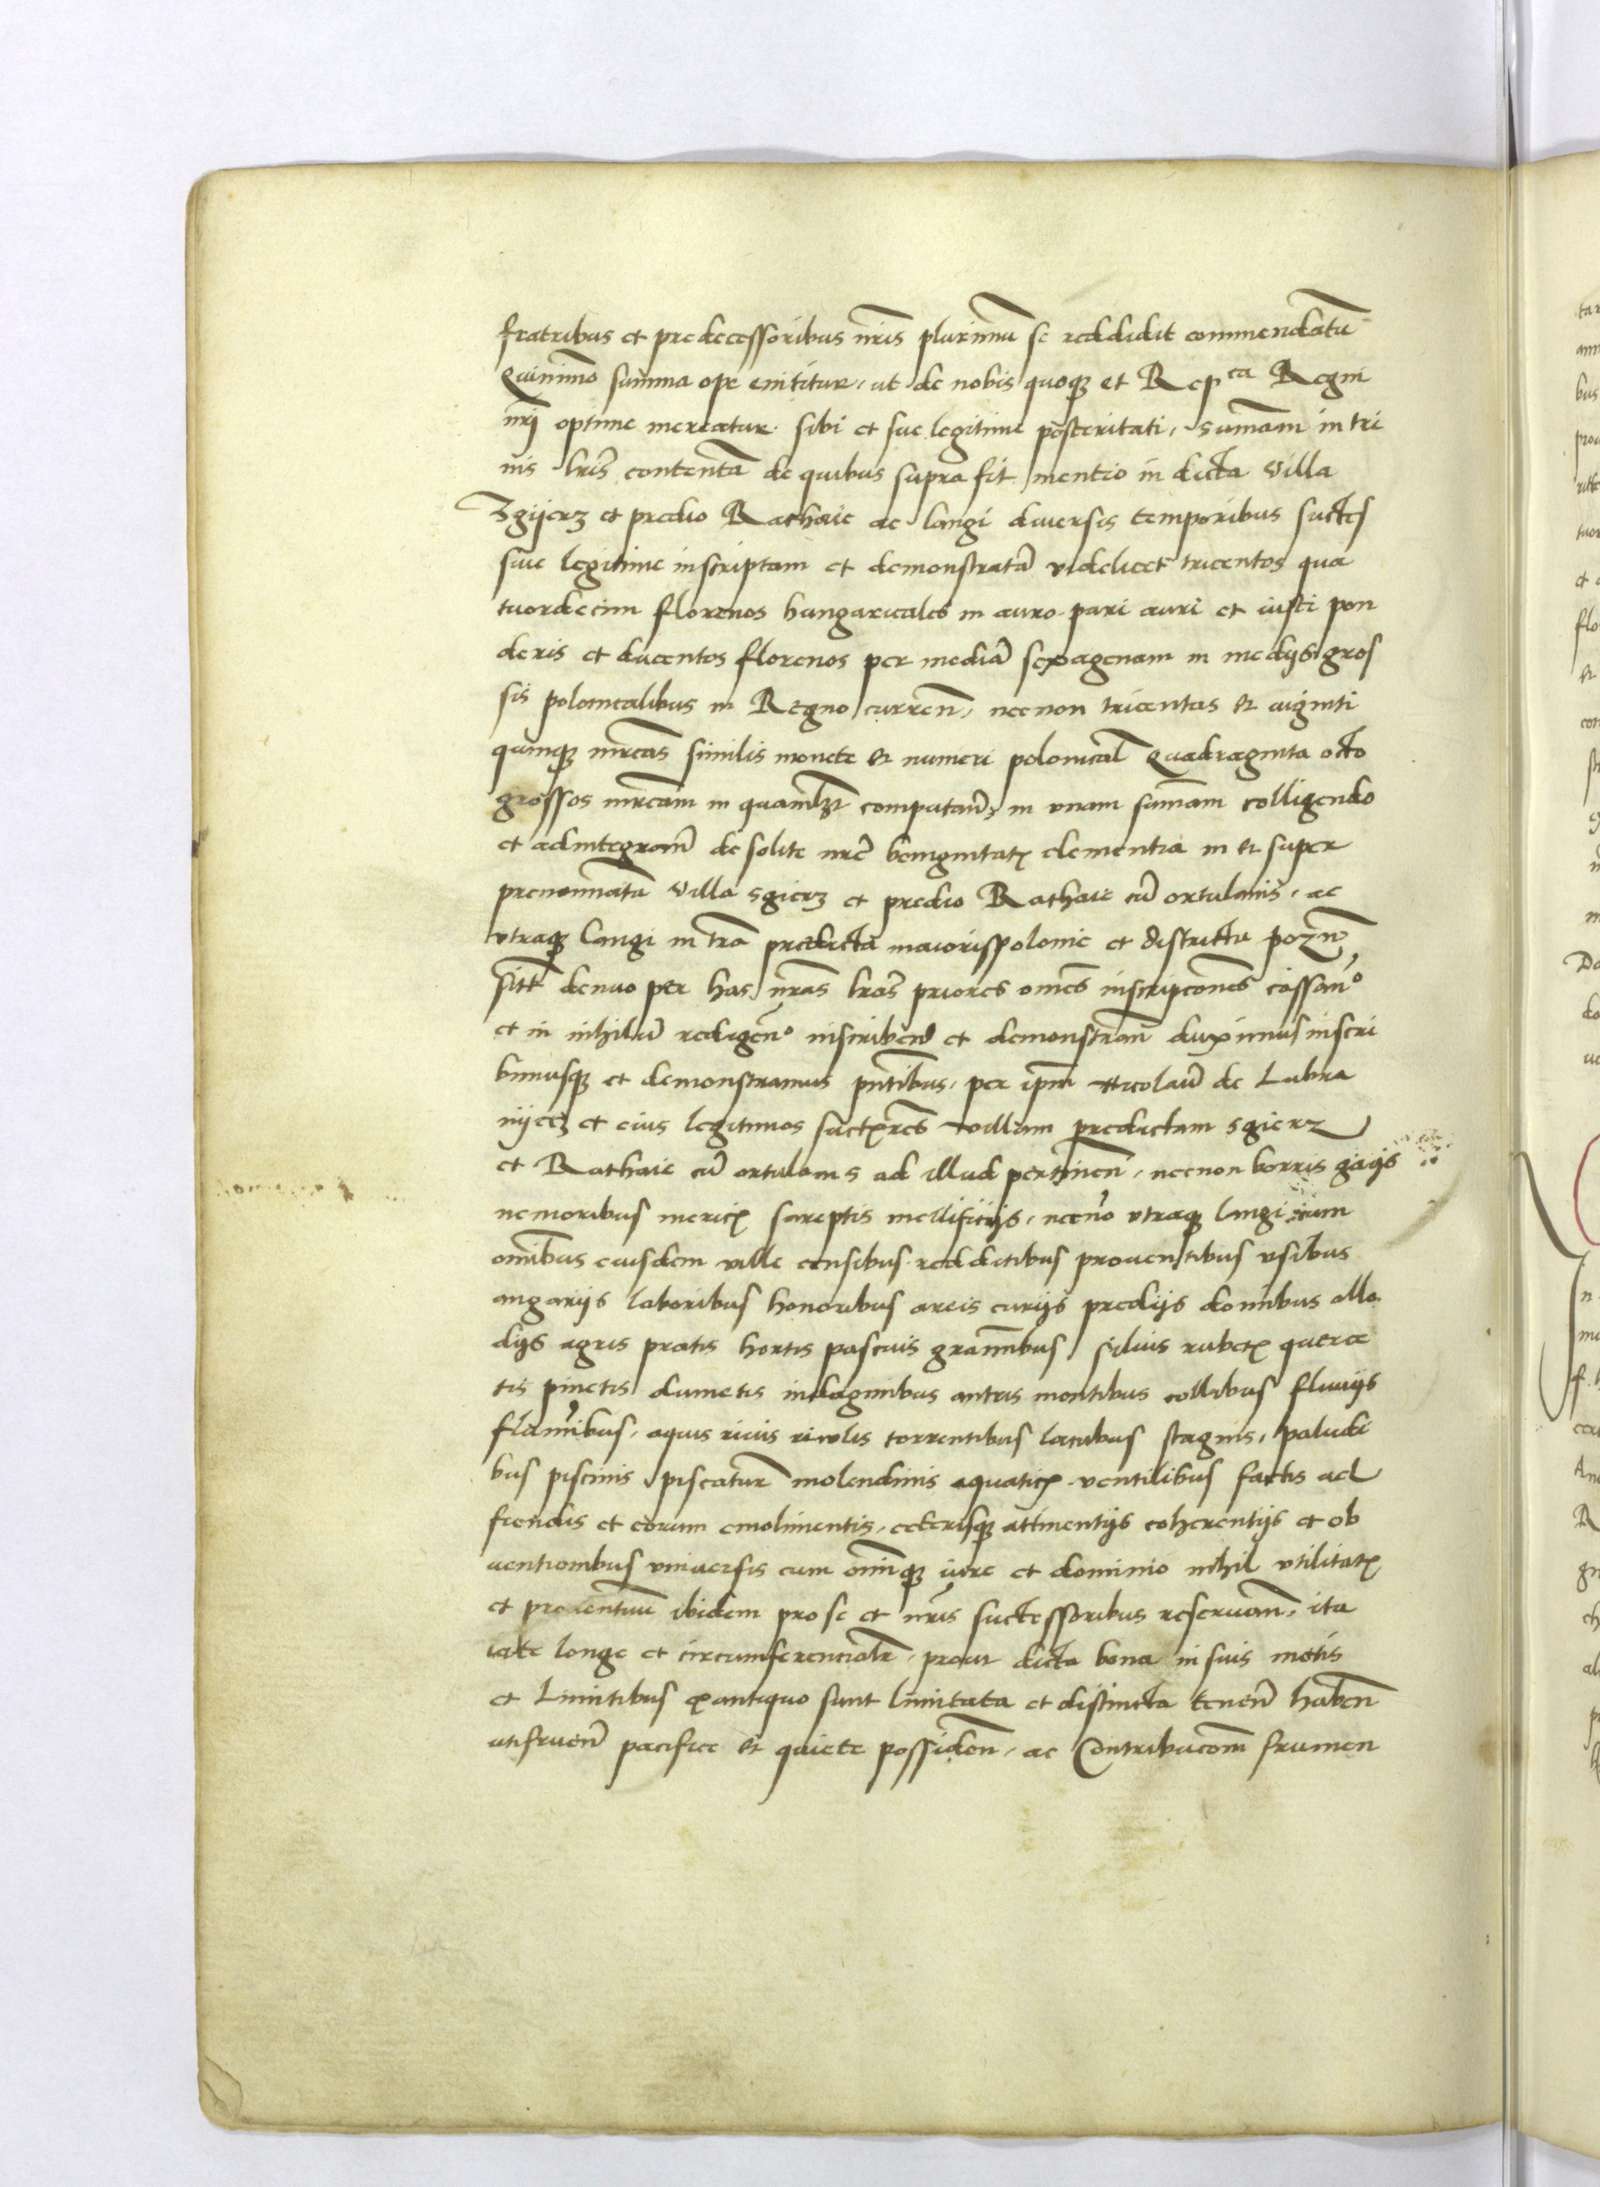 fratribus et predecessoribus nr̃is plurimũ se reddidit commendatũ
Quinimo summa ope enititur, ut de nobis quoq; et Repᶜᵃ Regni
nr̃j optime mereatur. sibi et sue legitime posteritati, sum̃am in tri
nis lr̃is contentã de quibus supra fit mentio in dicta villa
Zgijerz et predio Rathaie ac langi diuersis temporibus succes
siue legitime inscriptam et demonstratã videlicet tricentos qua
tuordecim florenos hungaricales in auro pari auri et iusti pon
deris et ducentos florenos per mediã sexagenam in medijs gros
sis polonicalibus in Regno curren̄, necnon tricentas et viginti
quinq; mr̃cas similis monete et numeri polonical̃ Quadraginta octo
grossos mr̃cam in quaml; computan̄, in vnam sum̃am colligendo
et adintegran̄ de solite nr̃e benignitatꝭ clementia in et super
prenominata villa sgierz et predio Rathaie cũ ortulanis, ac
vtraq; langi in tr̃a predicta maiorispolonie et districtu pozn̄
sitt̃ denuo per has nr̃as lr̃as priores om̃es inscripcões cassan̄º
et in nihilũ redigen̄º inscribend̃ et demonstran̄ duximus inscri
bimusq; et demonstramus pn̄tibus, per ip̃m Nicolaũ de Lubra
nijecz et eius legitimos succ̃res villam predictam sgierz
et Rathaie cũ ortulanis ad illud pertinen̄, necnon borris gaijs
nemoribus mericꝭ sareptis mellificijs, necnõ vtraq; langi cum
om̃ibus eiusdem ville censibus redditibus prouentibus vsibus
angarijs laboribus honoribus areis curijs predijs domibus allo
dijs agris pratis hortis pascuis gram̃ibus siluis rubetꝭ querce
tis pinetis dumetis indaginibus antris montibus collibus fluuijs
flum̃ibus, aquis riuis riuulis torrentibus lacubus stagnis, paludi
bus piscinis piscatur̃ molendinis aquaticꝭ ventilibus factis ac
fiendis et eorum emolimentis, ceterisq; attinentijs coherentijs et ob
uentionibus vniuersis cum om̃iq; iure et dominio nihil vtilitatꝭ
et prouentuũ ibidem pro se et nr̃is successoribus reseruan̄, ita
late longe et circumferencialr̃, prout dicta bona in suis metis
et Limitibus ex antiquo sunt limitata et distincta tenen̄ haben̄
utifruen̄ pacifice et quiete possiden̄, ac Contribucom̃ frumen